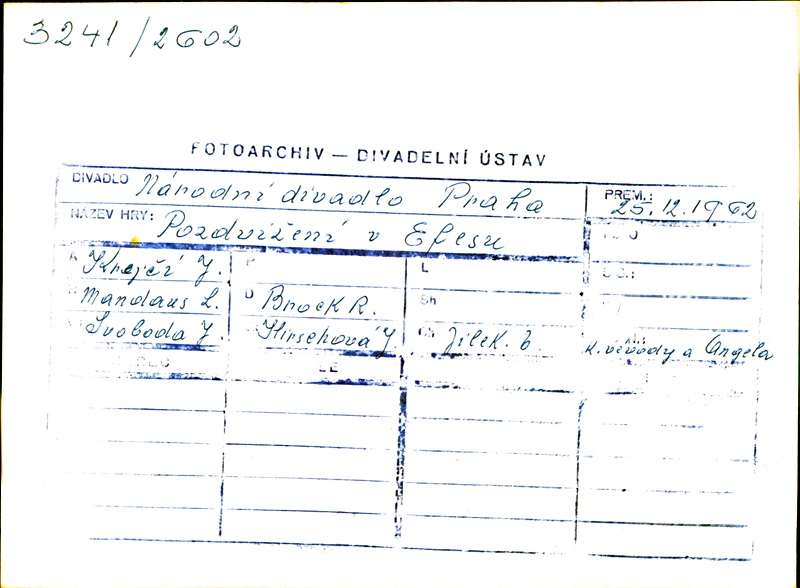 3241/2602
FOTOARCHIV — DIVADELNÍ ÚSTAV
DIVADLO Národní divadlo Praha PREM.: 25.12.1962
NÁZEV HRY: Pozdvižení v Efesu
A Krejčí J. P L
Mandaus L. D Brock R. Sh
Svoboda J. Hirschová J. Ch Jílek. b. a Angela